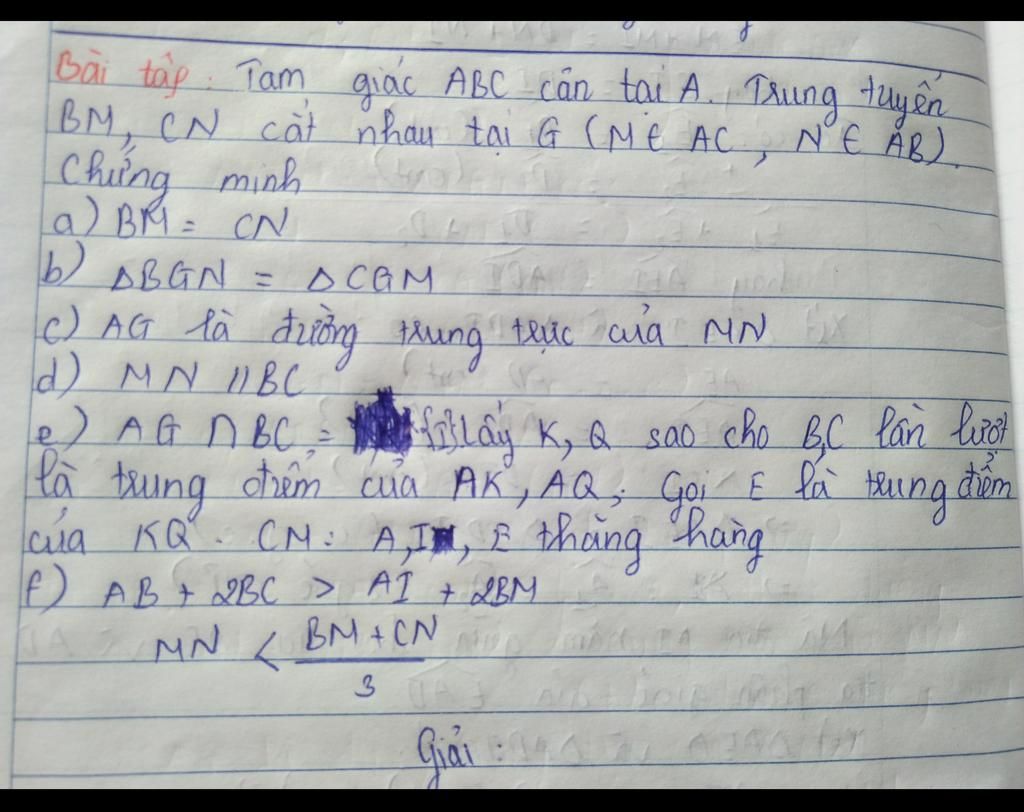 Bài tập: Tam giác ABC cân tại A. Trung tuyến
BM, CN cắt nhau tại G (M ∈ AC, N ∈ AB).
Chứng minh
a) BM = CN
b) ΔBGN = ΔCGM
c) AG là đường trung trực của MN
d) MN // BC
e) AG ∩ BC = {I} Lấy K, Q sao cho B,C lần lượt
là trung điểm của AK, AQ; Gọi E là trung điểm
của KQ. CM: A, I, E thẳng hàng
f) AB + 2BC > AI + 2BM
MN < (BM + CN)/3
Giải: